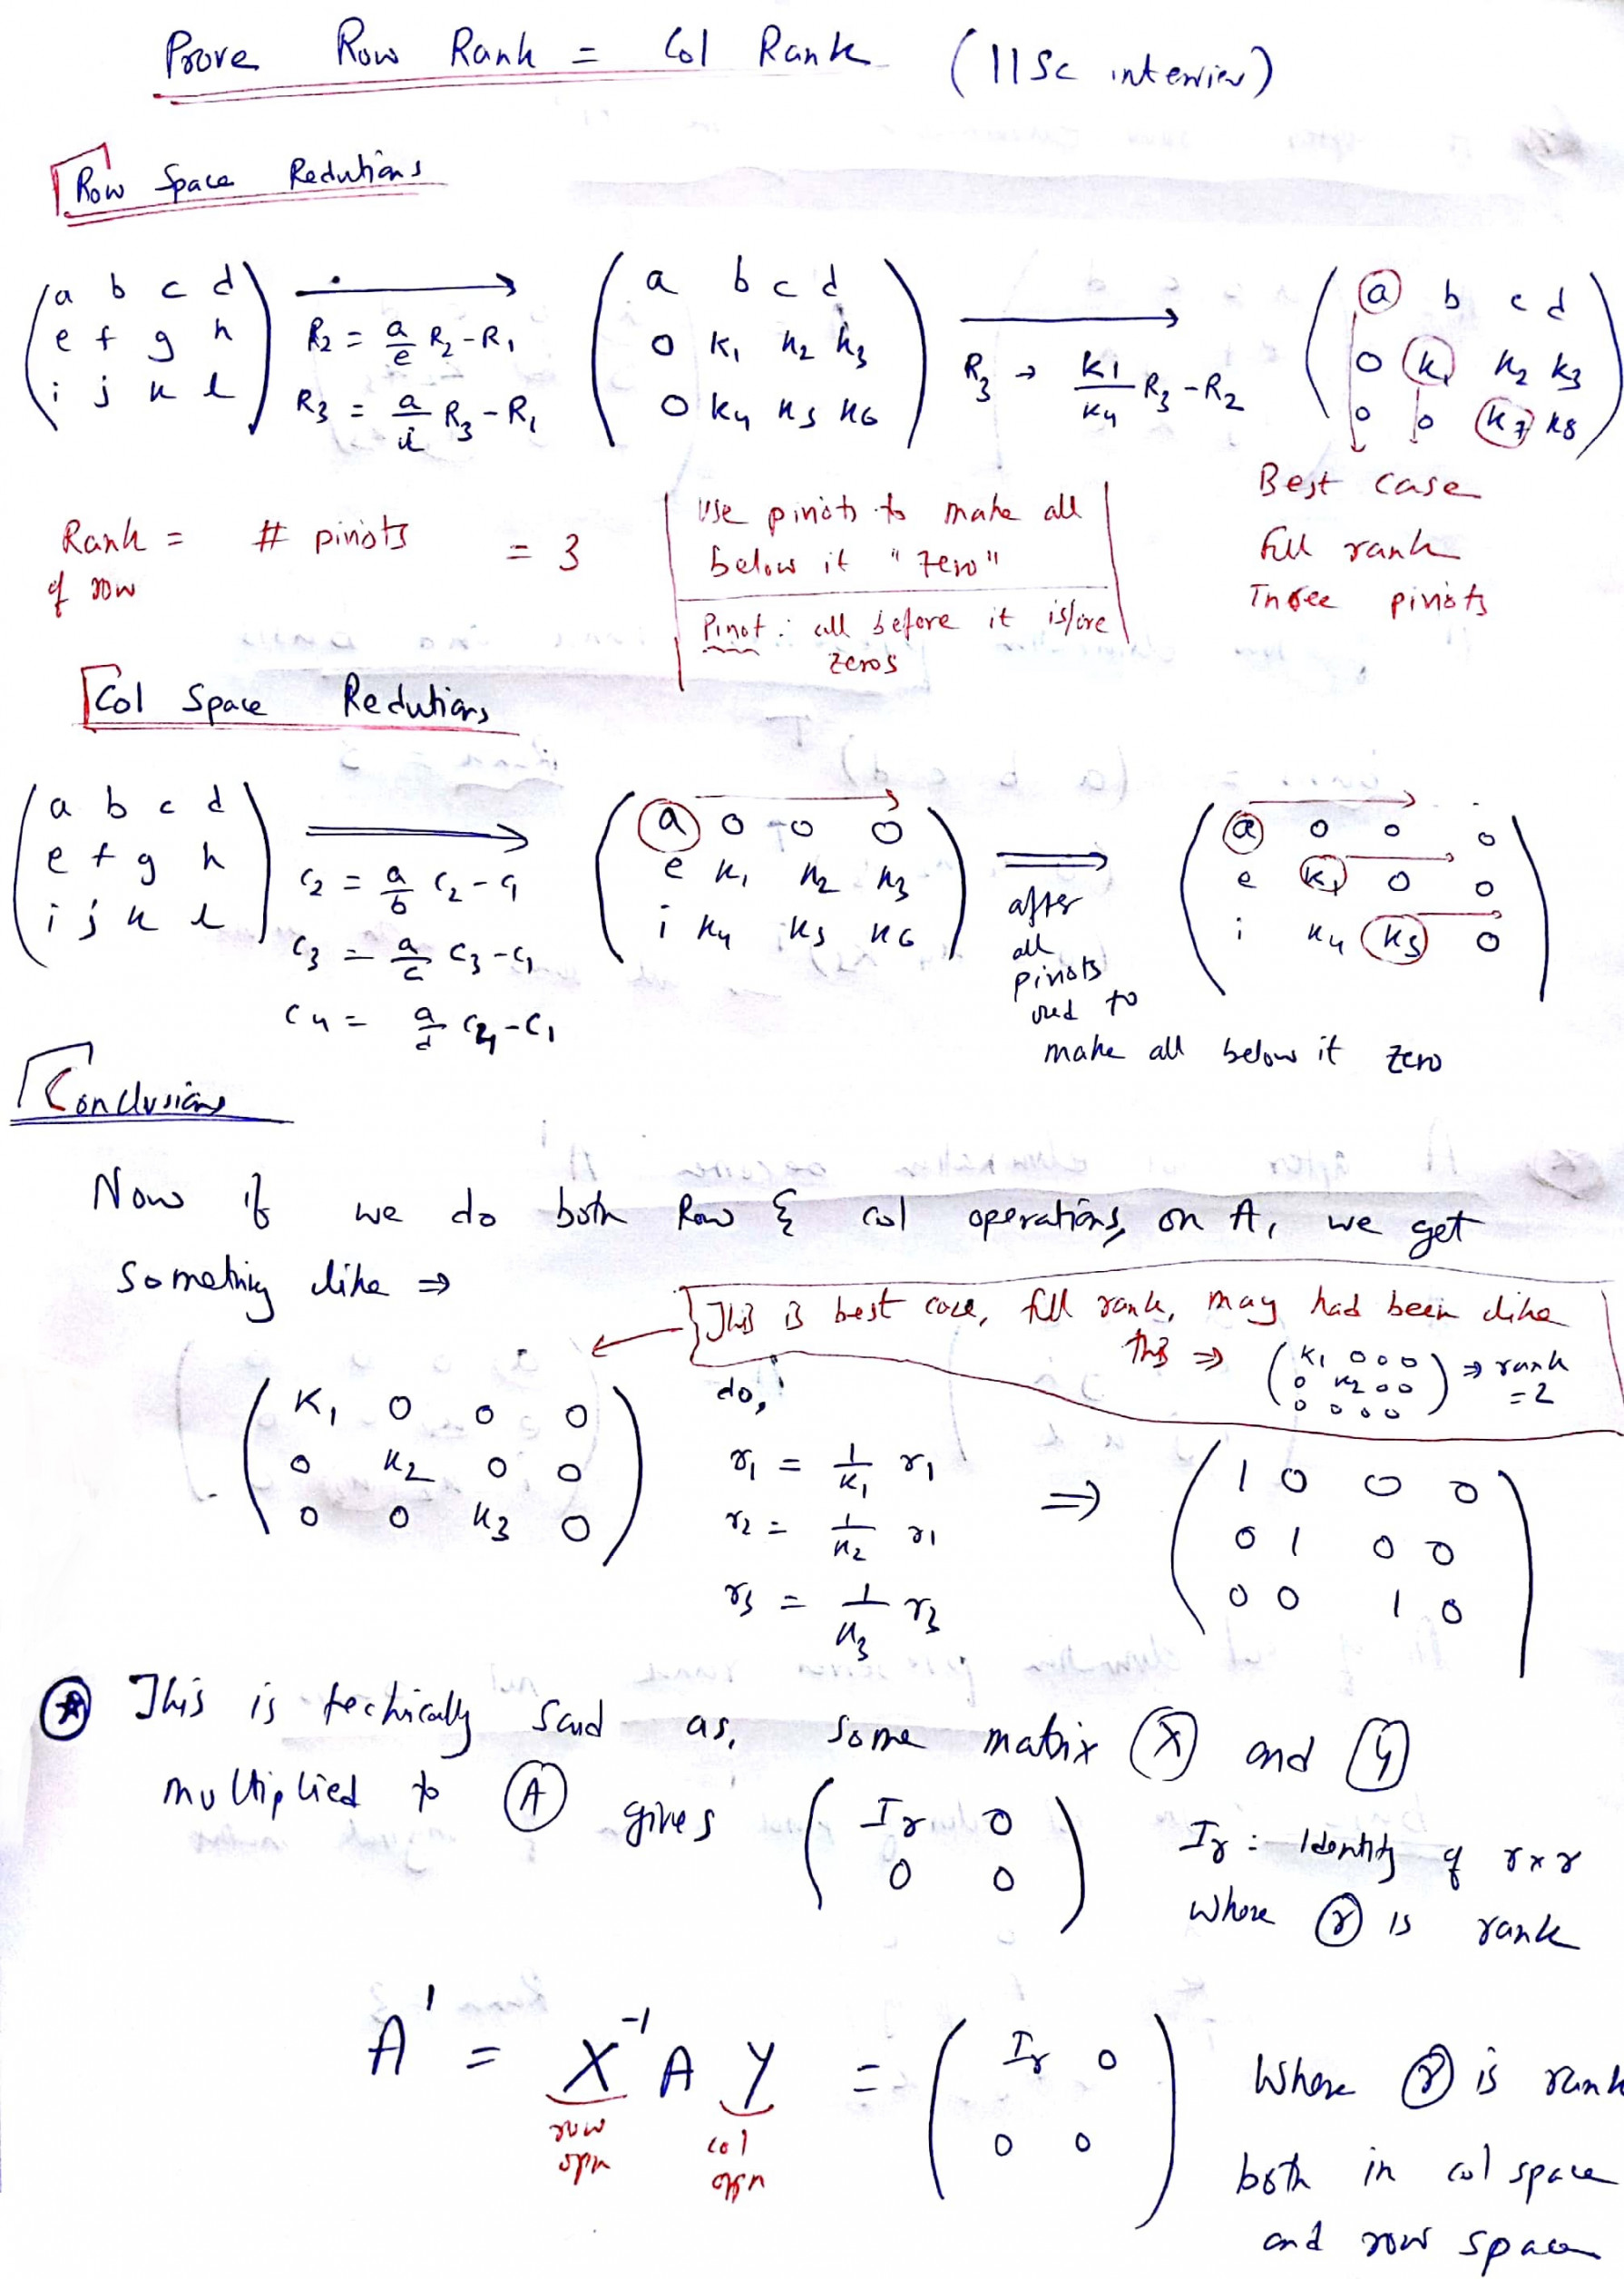 Prove Row Rank = Col Rank (IISc interview)
Row Space Redutions
( a b c d / e f g h / i j k l ) → R2 = a/e R2 - R1 , R3 = a/i R3 - R1 ( a b c d / 0 k1 k2 k3 / 0 k4 k5 k6 ) → R3 → k1/k4 R3 - R2 ( a b c d / 0 k1 k2 k3 / 0 0 k7 k8 )
Best case
full rank
Three pivots
Rank of row = # pivots = 3
Use pivots to make all
below it "zero"
Pivot : all before it is/are
zeros
Col Space Redutions
( a b c d / e f g h / i j k l ) ⇒ ( a 0 0 0 / e k1 k2 k3 / i k4 k5 k6 ) ⇒ ( a 0 0 0 / e k1 0 0 / i k4 k5 0 )
C2 = a/b C2 - C1
C3 = a/c C3 - C1
C4 = a/d C4 - C1
after
all
pivots
used to
make all below it zero
Conclusions
Now if we do both Row & col operations, on A, we get
something like ⇒
This is best case, full rank, may had been like
this ⇒ ( k1 0 0 0 / 0 k2 0 0 / 0 0 0 0 ) ⇒ rank = 2
( K1 0 0 0 / 0 k2 0 0 / 0 0 k3 0 )
do,
r1 = 1/K1 r1
r2 = 1/k2 r1
r3 = 1/k3 r3
⇒ ( 1 0 0 0 / 0 1 0 0 / 0 0 1 0 )
This is techically said as, some matrix X and Y
multiplied to A gives ( Ir 0 / 0 0 ) Ir : Identity of r×r
where r is rank
A' = X⁻¹ A Y = ( Ir 0 / 0 0 ) where r is rank
row opn
col opn
both in col space
and row space